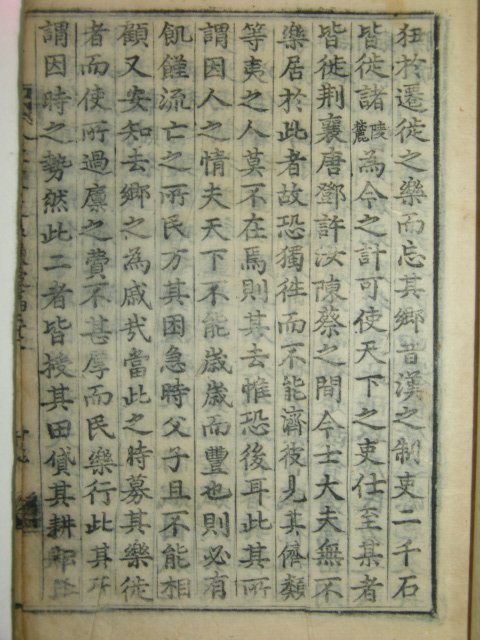 狂於遷徙之樂而忘其鄉昔漢之制吏二千石
皆徙諸陵麓為今之計可使天下之吏仕至某者
皆徙荆襄唐鄧許汝陳蔡之間今士大夫無不
樂居於此者故恐獨徃而不能濟彼見其儕類
等夷之人莫不在焉則其去惟恐後耳此其所
謂因人之情夫天下不能歲歲而豐也則必有
飢饉流亡之所民方其困急時父子且不能相
顧又安知去鄉之為戚㦲當此之時募其樂徙
者而使所過廪之費不甚厚而民樂行此其所
謂因時之勢然此二者皆授其田貸其耕